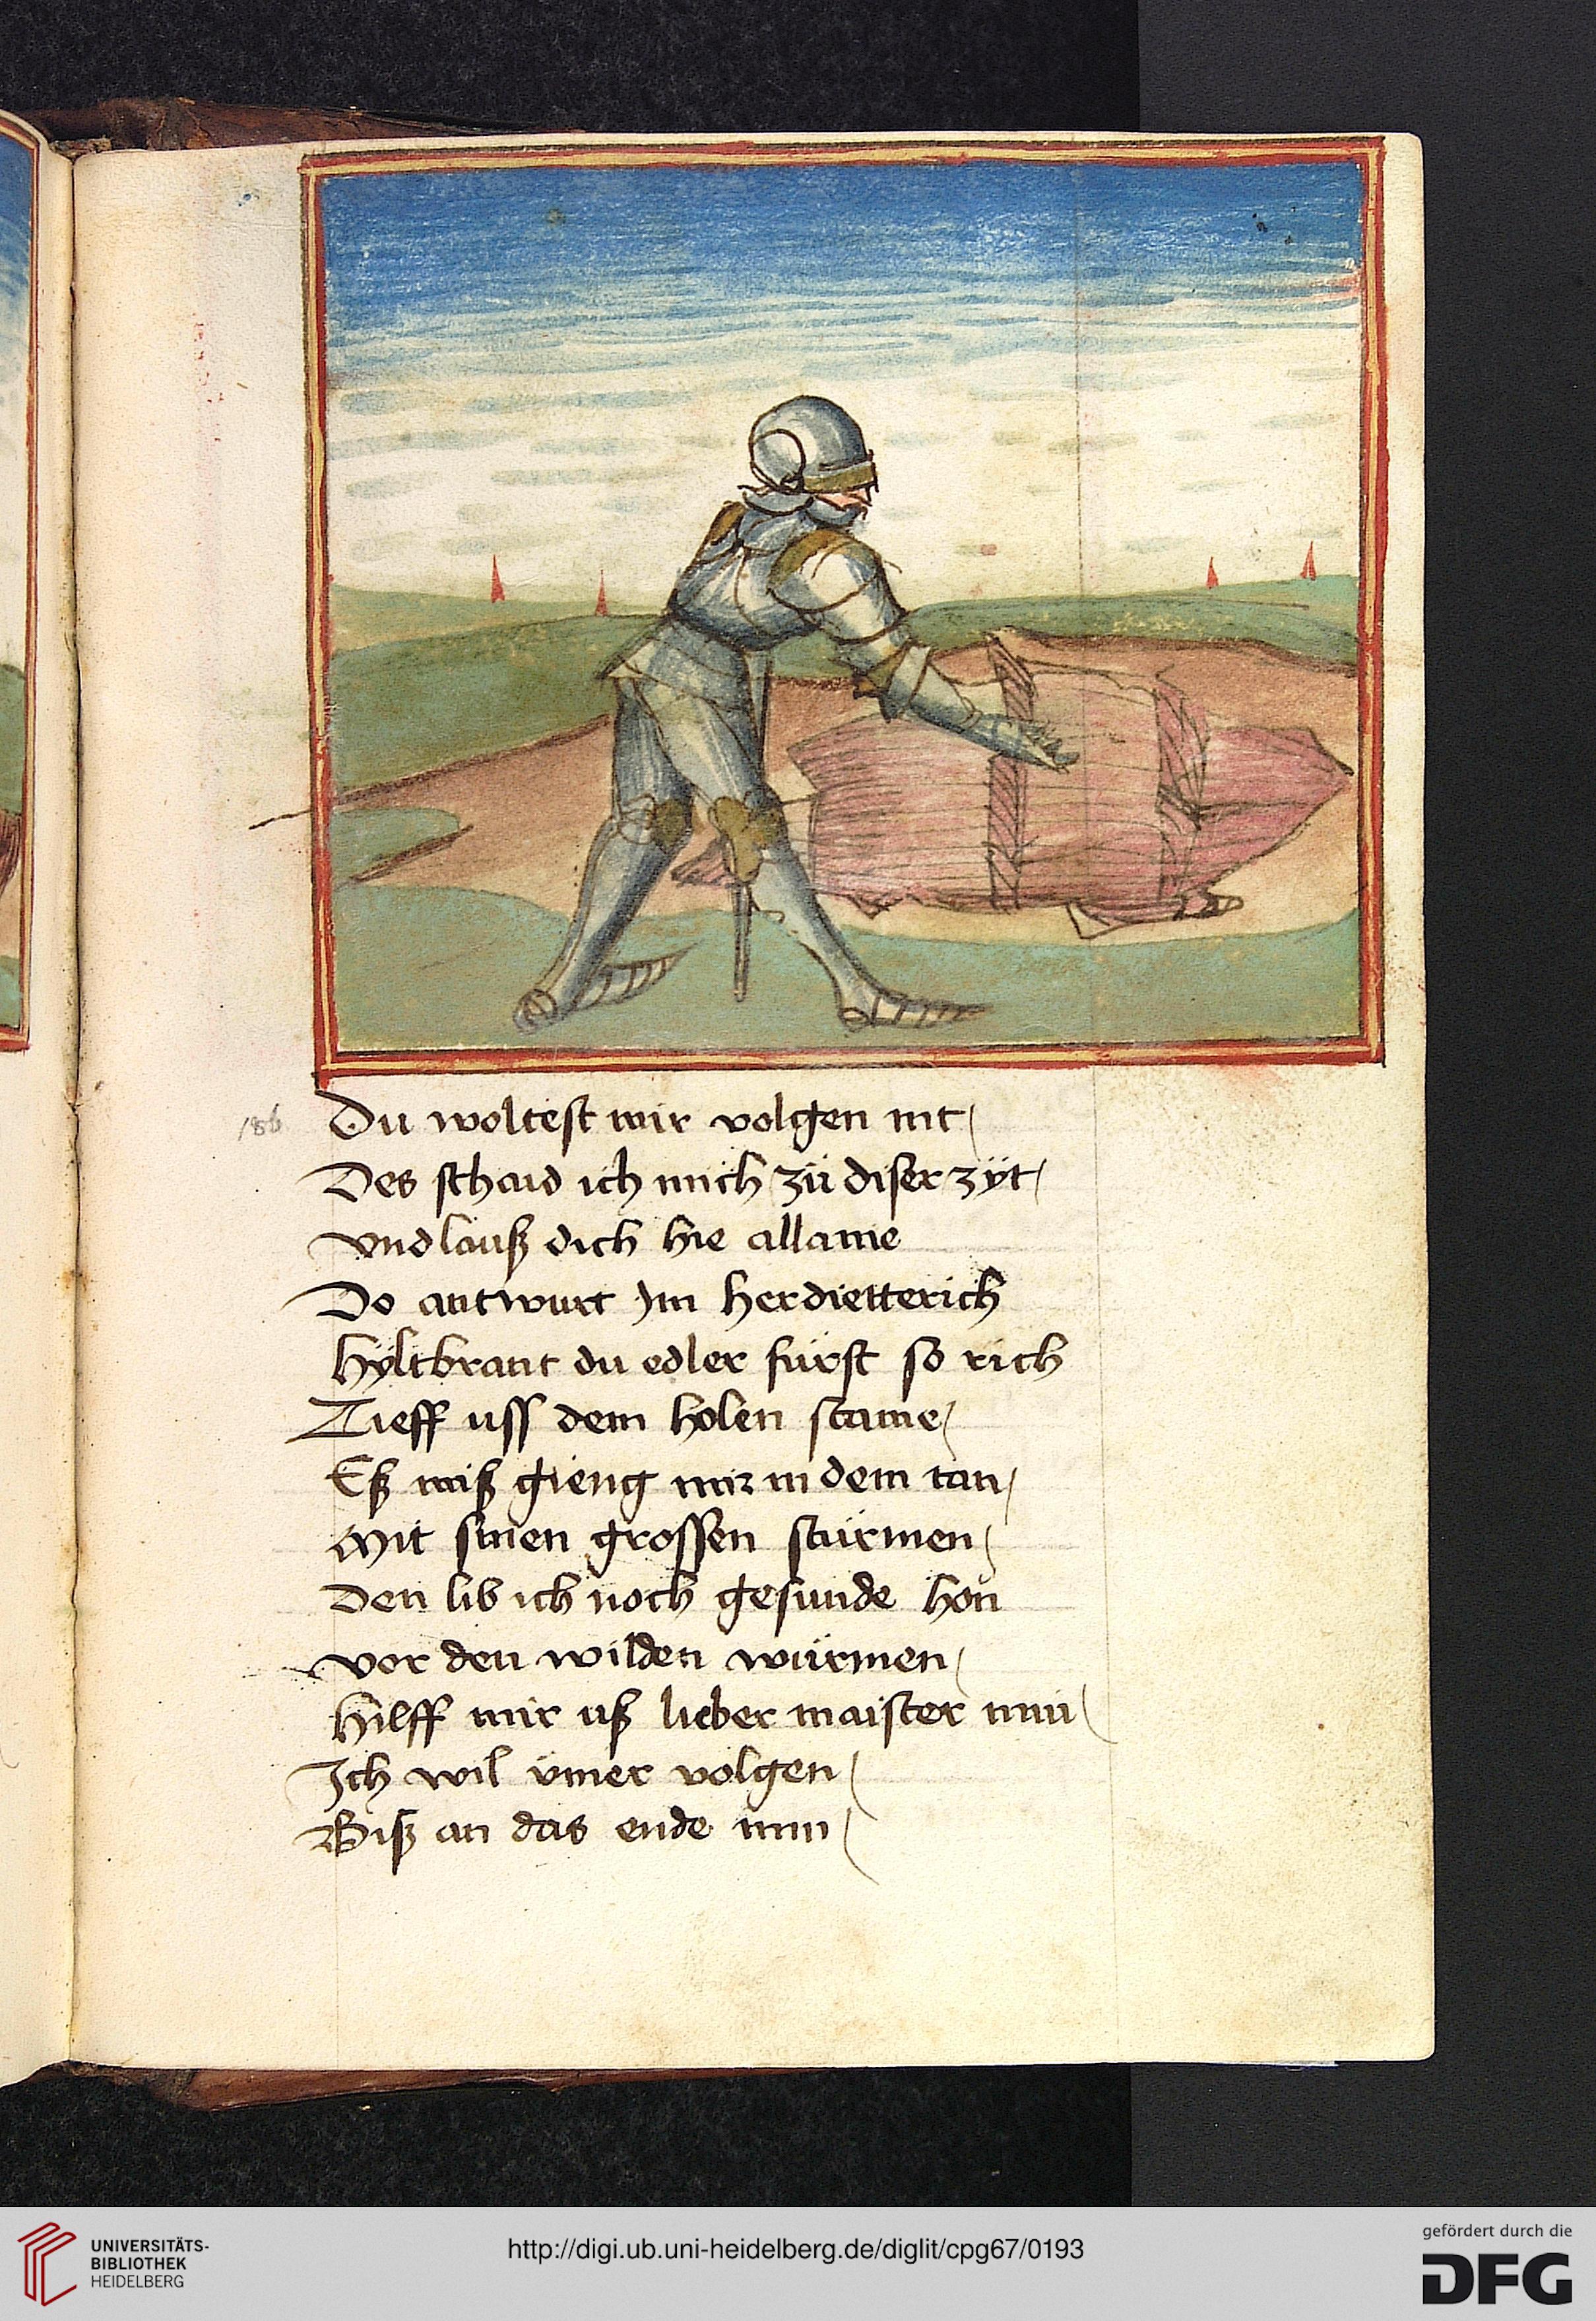 186
Du woltest mir volgen nit
Des schaid ich mich zů diser zÿt
vnd lauß dich hie allaine
Do antwurt Im her dietterich
hÿltbrant du edler fürst so rich
Tieff uss dem holen staine
Eß miß gieng mir in dem tan
Mit sinen grossen stürmen
den lib ich noch gesunde hon
vor den wilden würmen
hilff mir uß lieber maister min
Ich wil ümer volgen
Biß an das ende min
UNIVERSITÄTS-
BIBLIOTHEK
HEIDELBERG
http://digi.ub.uni-heidelberg.de/diglit/cpg67/0193
gefördert durch die
DFG